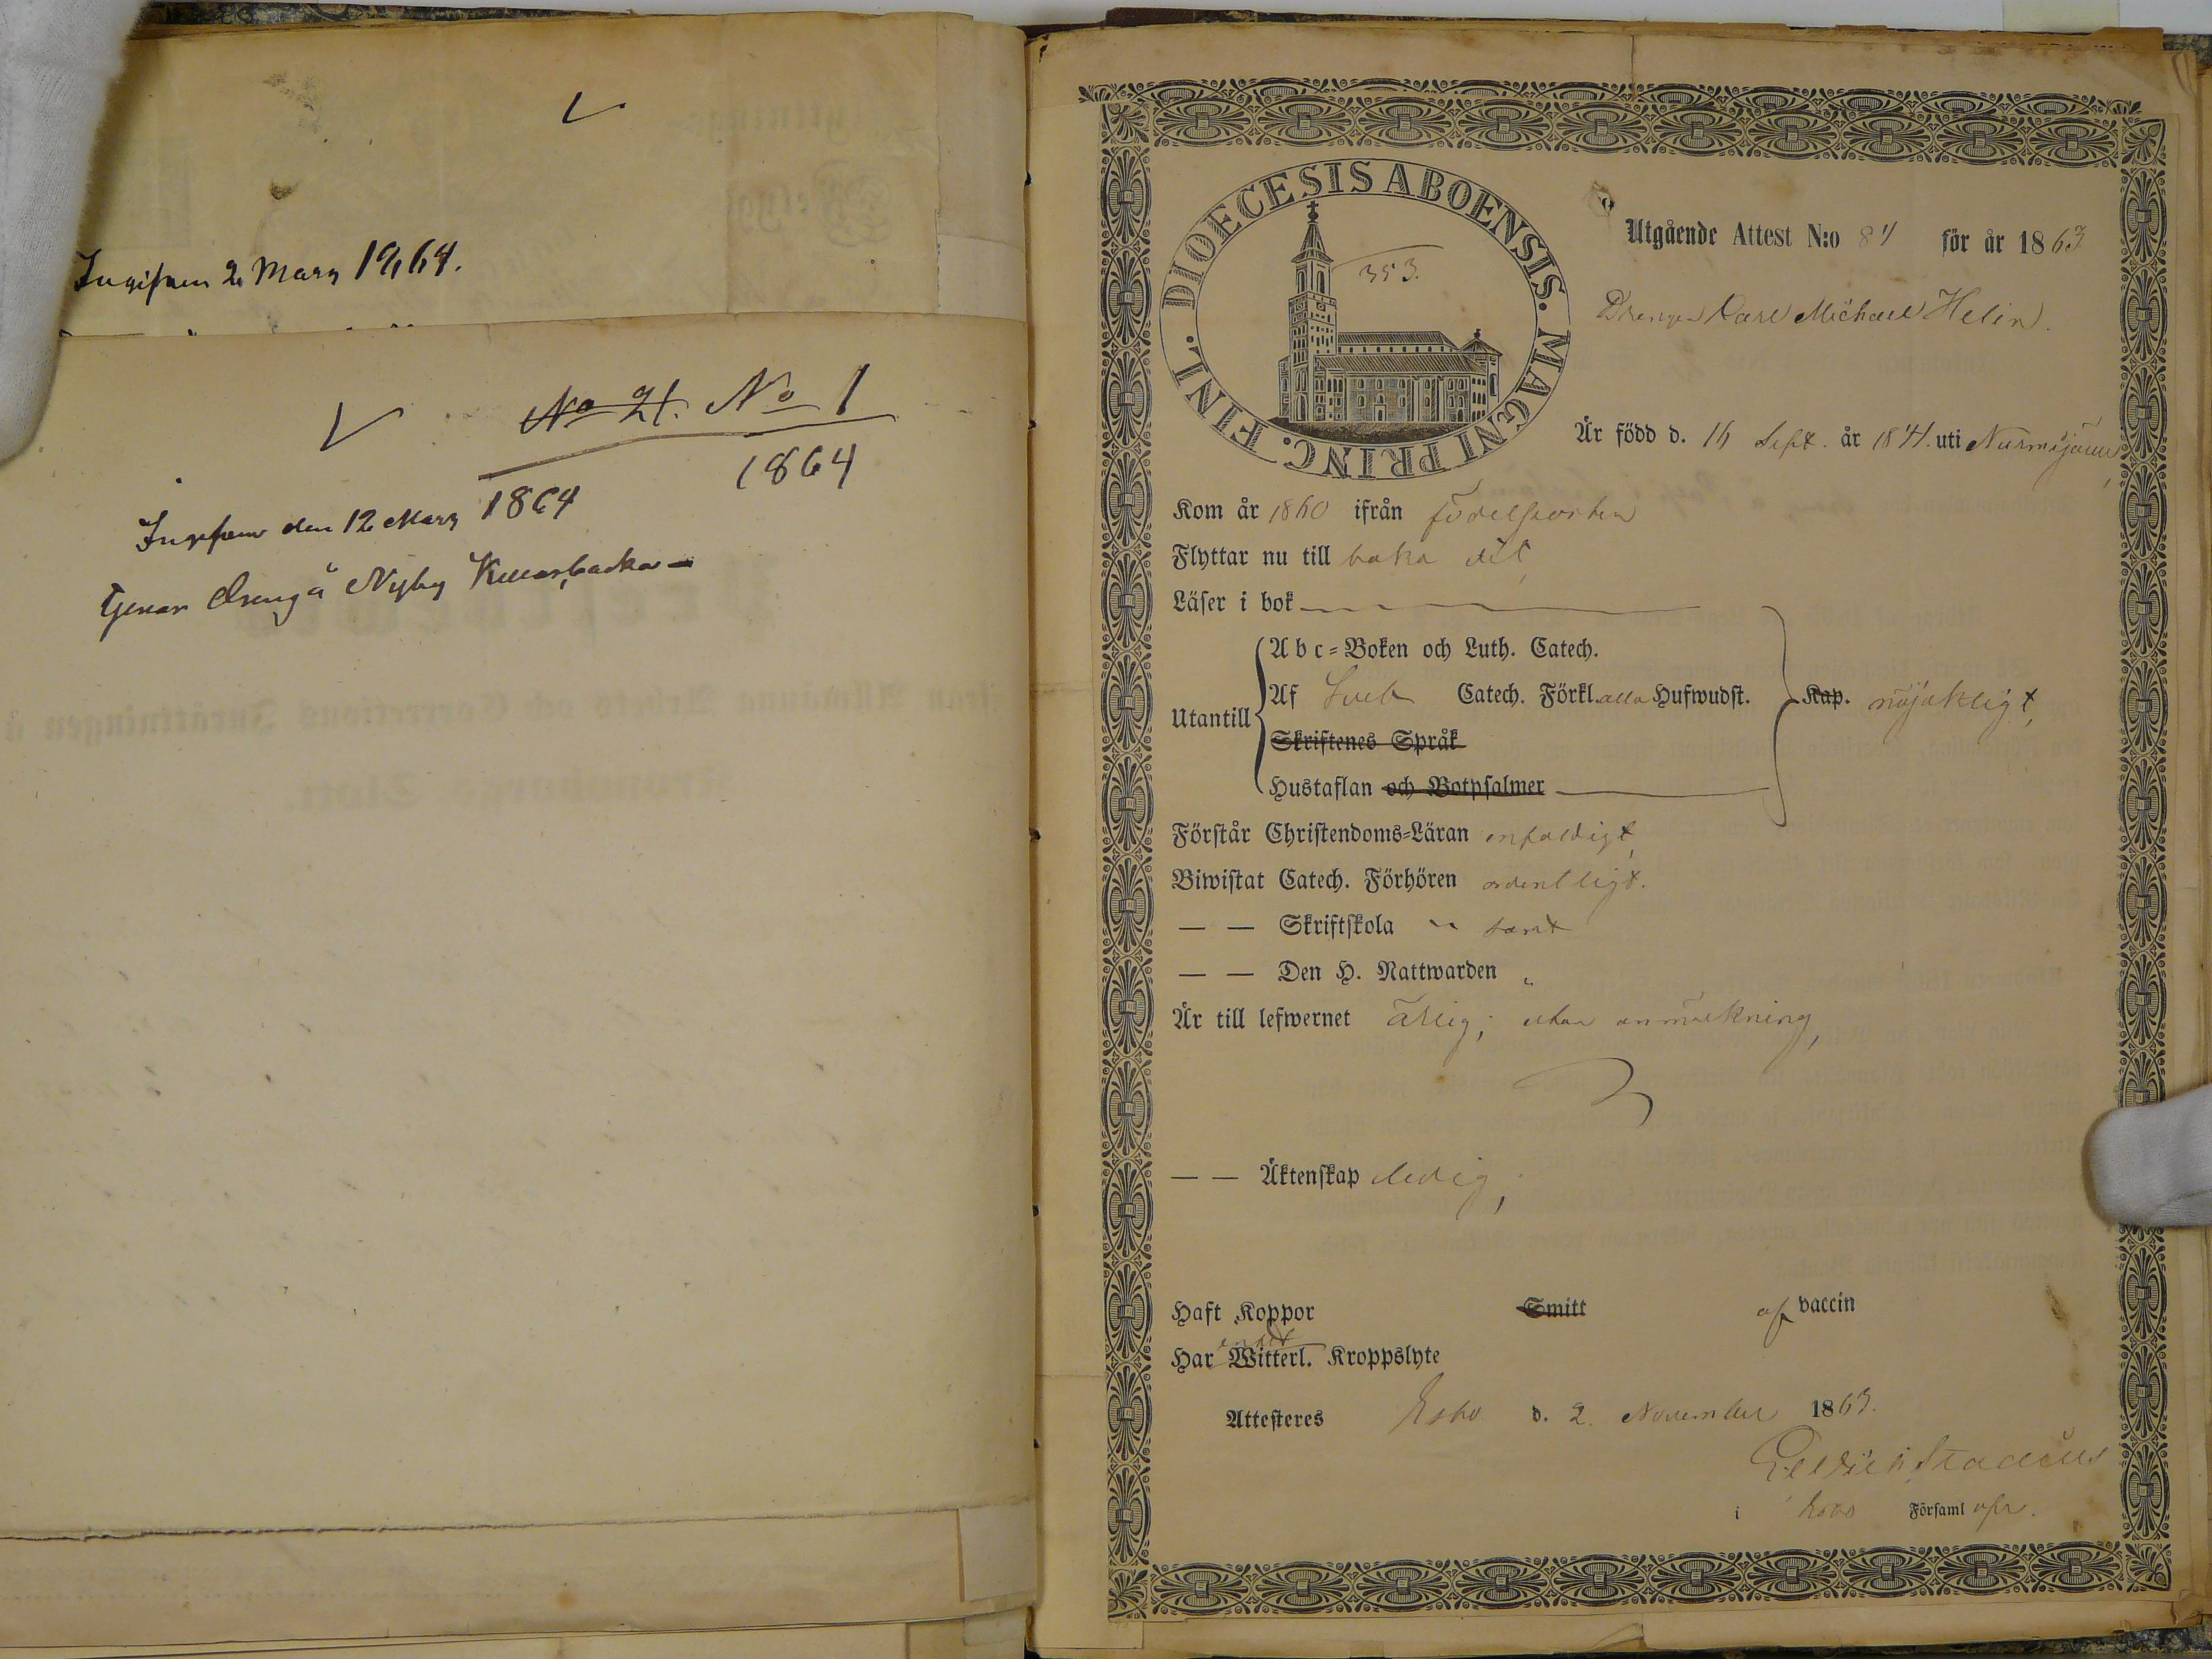 2 Mars 1864.
No 21. No 1
1864 1864
den 12 Mars
Tjenar dreng å Nyby
DIOECESIS ABOENSIS. MAGNI PRINC. FINL.
353.
Utgående Attest N:o 84 för år 1863
Drengen Karl Michael Helin.
Är född d. 16 Sept. år 1841. uti Nurmijärvi,
Kom år 1860 ifrån födelseorten
Flyttar nu till baka dit,
Läser i bok
Utantill
A b c=Boken och Luth. Catech.
Af Sveb Catech. Förkl. alla Hufwudst.
Skriftenes Språk
Hustaflan och Botpsalmer
Kap. nöjaktigt,
Förstår Christendoms=Läran enfaldigt,
Biwistat Catech. Förhören ordentligt.
— — Skriftskola " samt
— — Den H. Nattwarden "
Är till lefwernet ärlig; utan anmärkning,
— — Äktenskap ledig,
Haft Koppor Smitt af vaccin
Har intet Witterl. Kroppslyte
Attesteres Esbo d. 2 November 1863.
i Esbo Församl